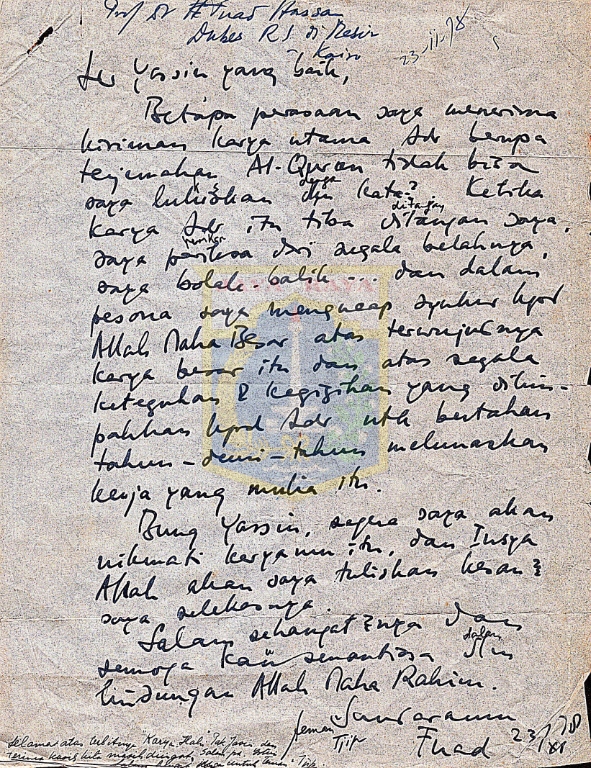 Prof Dr H Fuad Hassan
Dubes R.I. di Mesir
Kairo
23-11-78
Sdr Yassin yang baik,
Betapa perasaan saya menerima
kiriman karya utama Sdr berupa
terjemahan Al-Qur'an tidak bisa
saya lukiskan dgn kata2. Ketika
karya Sdr itu tiba ditangan saya,
saya periksa dari segala belahnya,
saya bolak-balik ... dan dalam
pesona saya mengucap syukur kpd
Allah Maha Besar atas terwujudnya
karya besar itu dan atas segala
keteguhan & kegigihan yang dilim-
pahkan kpd Sdr utk bertahan
tahun-demi-tahun melunaskan
kerja yang mulia itu.
Bung Yassin, segera saya akan
nikmati karyamu itu, dan Insya
Allah akan saya tuliskan kesan2
saya selekasnya.
Salam sehangat2nya dan
semoga kau senantiasa dlm
lindungan Allah Maha Rahim.
Saudaramu
Fuad 23/XI 78